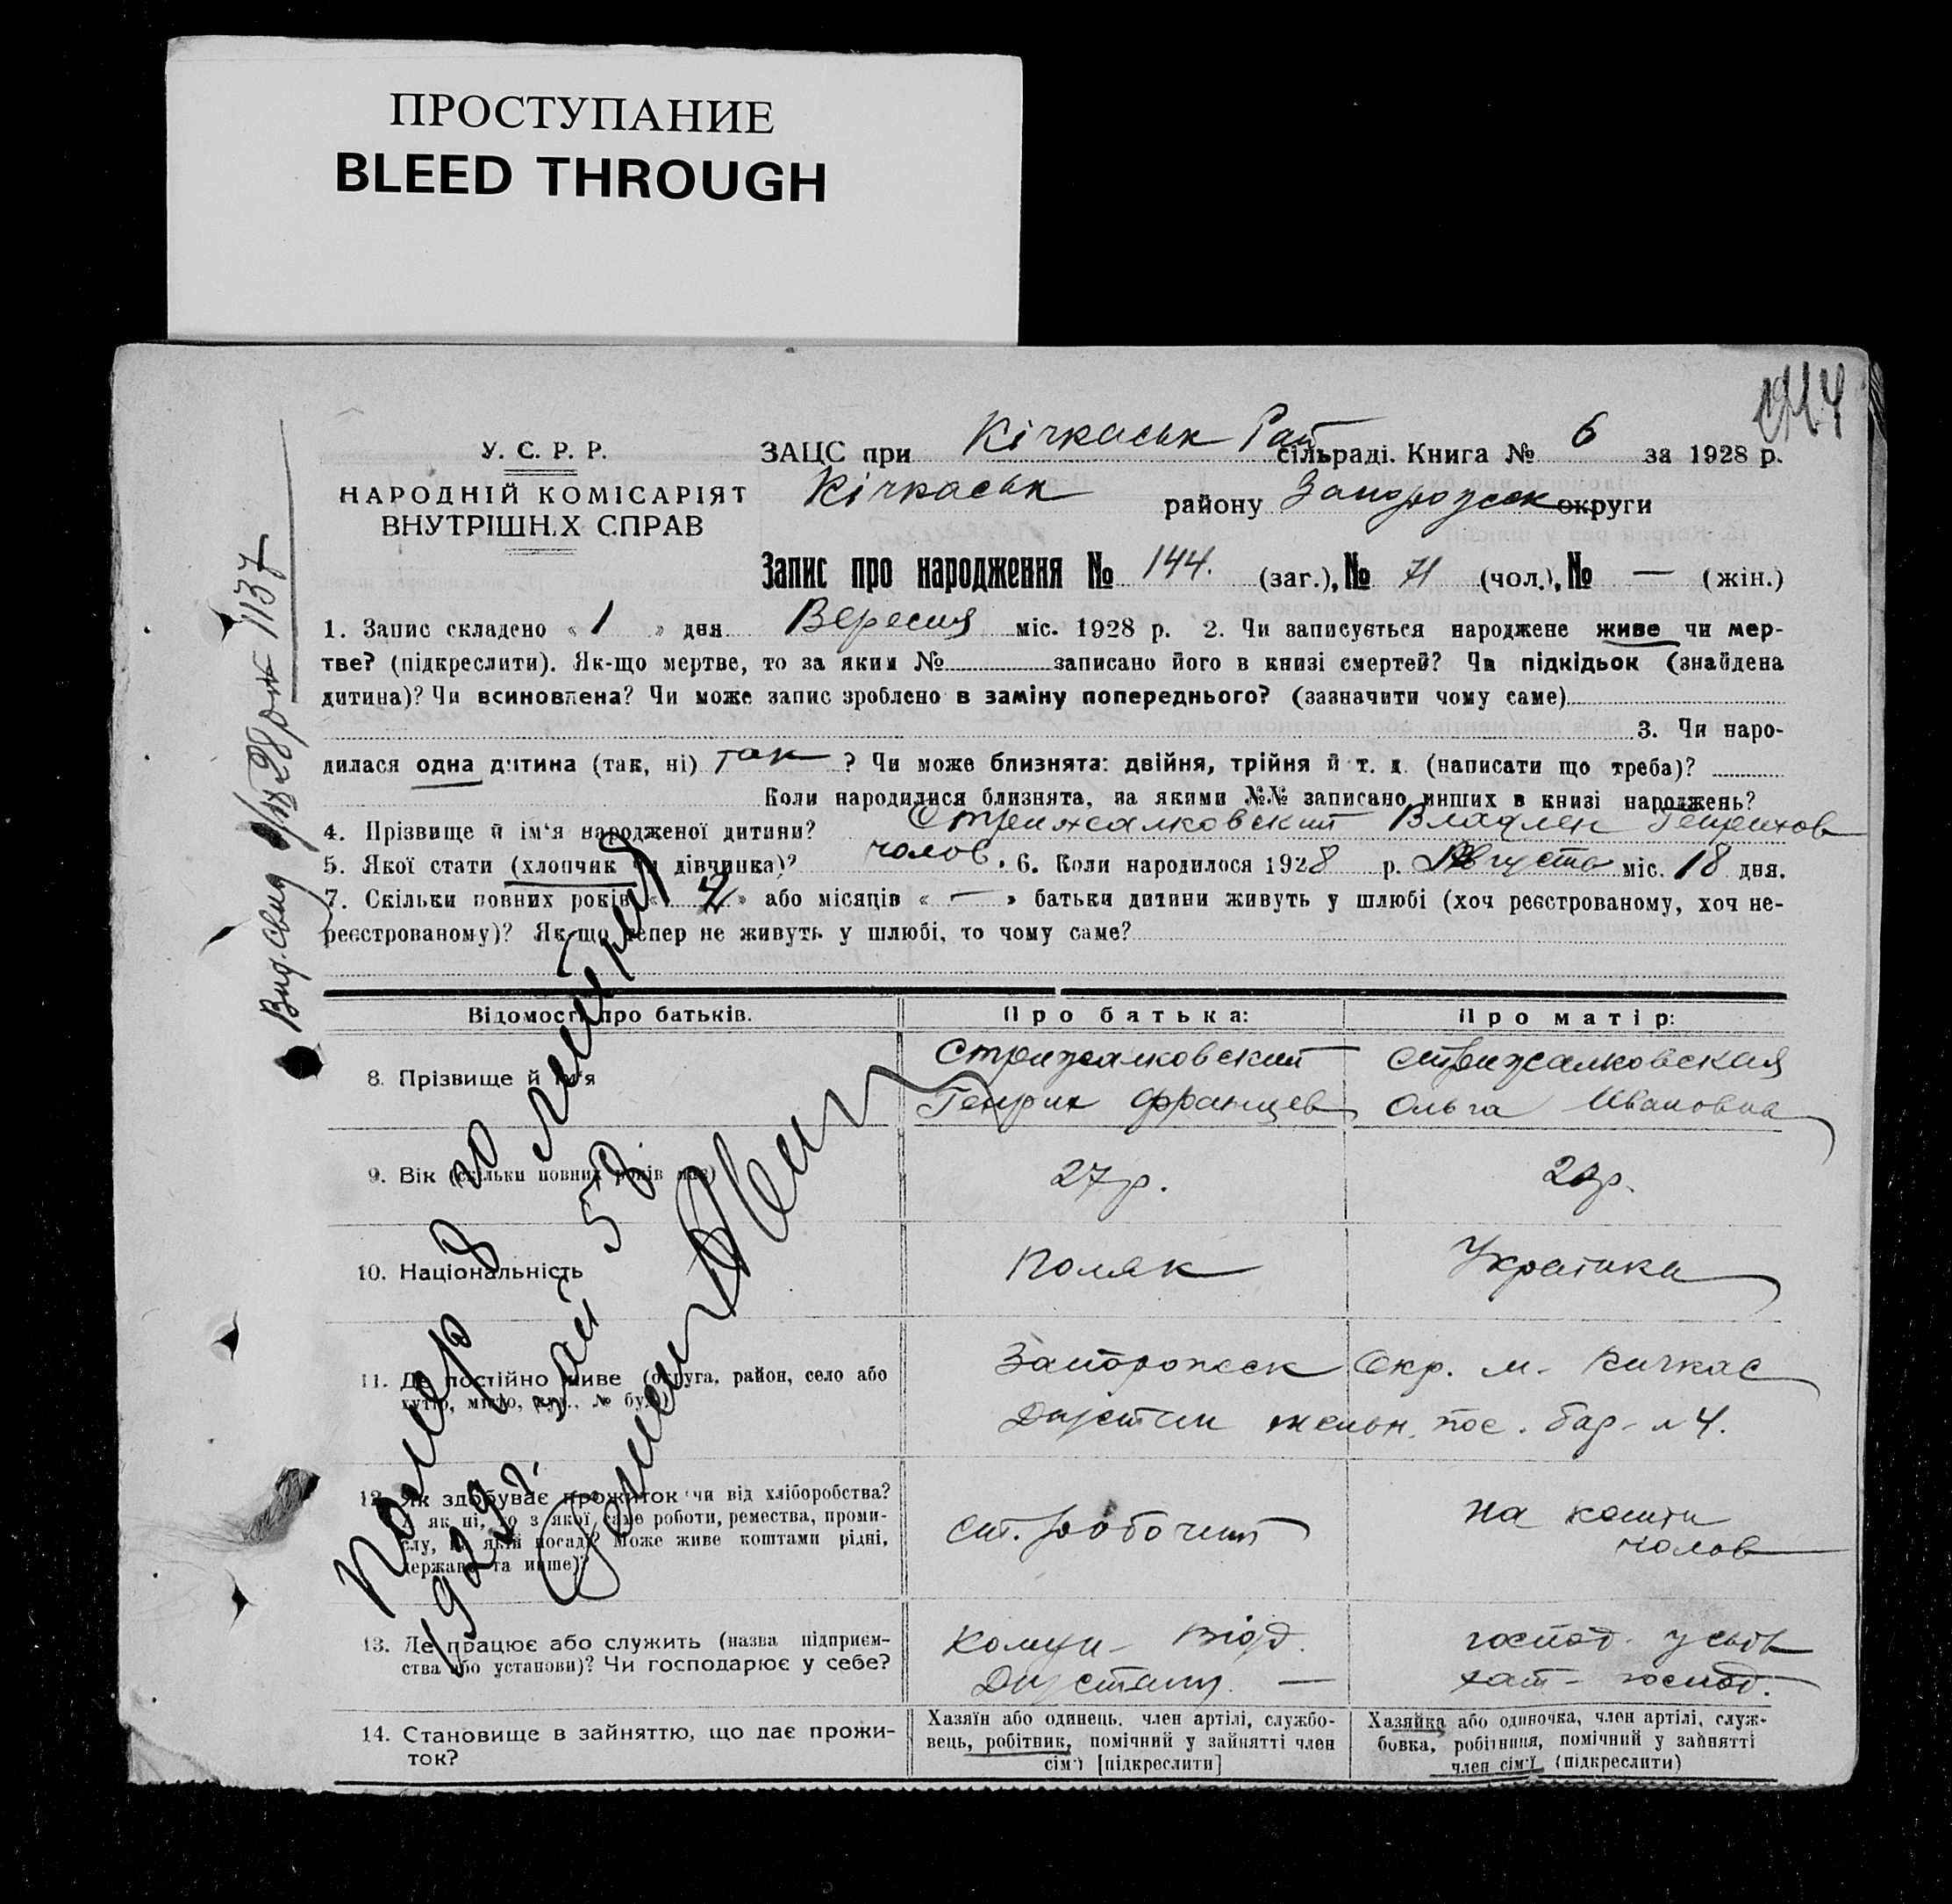 ПРОСТУПАНИЕ
BLEED THROUGH
У. С. Р. Р.
НАРОДНІЙ КОМІСАРІЯТ
ВНУТРІШН.Х СПРАВ
ЗАЦС при Кічкаськ Рай сільраді. Книга № 6 за 1928 р.
Кічкаськ району Запорожск округи
Запис про народження № 144. (заг.), № 71 (чол.), № — (жін.)
1. Запис складено « 1 » дня Вересня міс. 1928 р. 2. Чи записується народжене живе чи мер-
тве? (підкреслити). Як-що мертве, то за яким № записано його в книзі смертей? Чи підкідьок (знайдена
дитина)? Чи всиновлена? Чи може запис зроблено в заміну попереднього? (зазначити чому саме)
3. Чи наро-
дилася одна дитина (так, ні) так ? Чи може близнята: двійня, трійня й т. д. (написати що треба)?
Коли народилися близнята, за якими №№ записано инших в книзі народжень?
4. Прізвище й ім'я народженої дитини? Стрижалковский Владлен Генрихов
5. Якої стати (хлопчик чи дівчинка)? чолов. 6. Коли народилося 1928 р. Августа міс. 18 дня.
7. Скільки повних років « 2 » або місяців « — » батьки дитини живуть у шлюбі (хоч реєстрованому, хоч не-
реєстрованому)? Як-що тепер не живуть у шлюбі, то чому саме?
Відомості про батьків. Про батька: Про матір:
8. Прізвище й ім'я
Стрижалковский
Генрих Францев
Стрижалковская
Ольга Ивановна
9. Вік (скільки повних років має) 27 р. 20 р.
10. Національність Поляк Українка
11. Де постійно живе (округа, район, село або
хутір, місто, вул., № буд.)
Запорожск Окр. м. Кичкас
пос. бар. № 4.
12. Як здобуває прожиток чи від хліборобства?
А як ні, то з якої саме роботи, ремества, проми-
слу, на якій посаді? Може живе коштами рідні,
держави та инше)?
ст. рабочий
на кошти
чолов
13. Де працює або служить (назва підприєм-
ства або установи)? Чи господарює у себе?
Комун. Від.
—
господ. у своїй
хат. господ.
14. Становище в зайняттю, що дає прожи-
ток?
Хазяїн або одинець, член артілі, службо-
вець, робітник, помічний у зайнятті член
сім'ї [підкреслити]
Хазяйка або одиночка, член артілі, служ-
бовка, робітниця, помічний у зайнятті
член сім'ї (підкреслити)
Вид. свид 1/IX 28 рок 1137
Помер 8 го
1929 р.